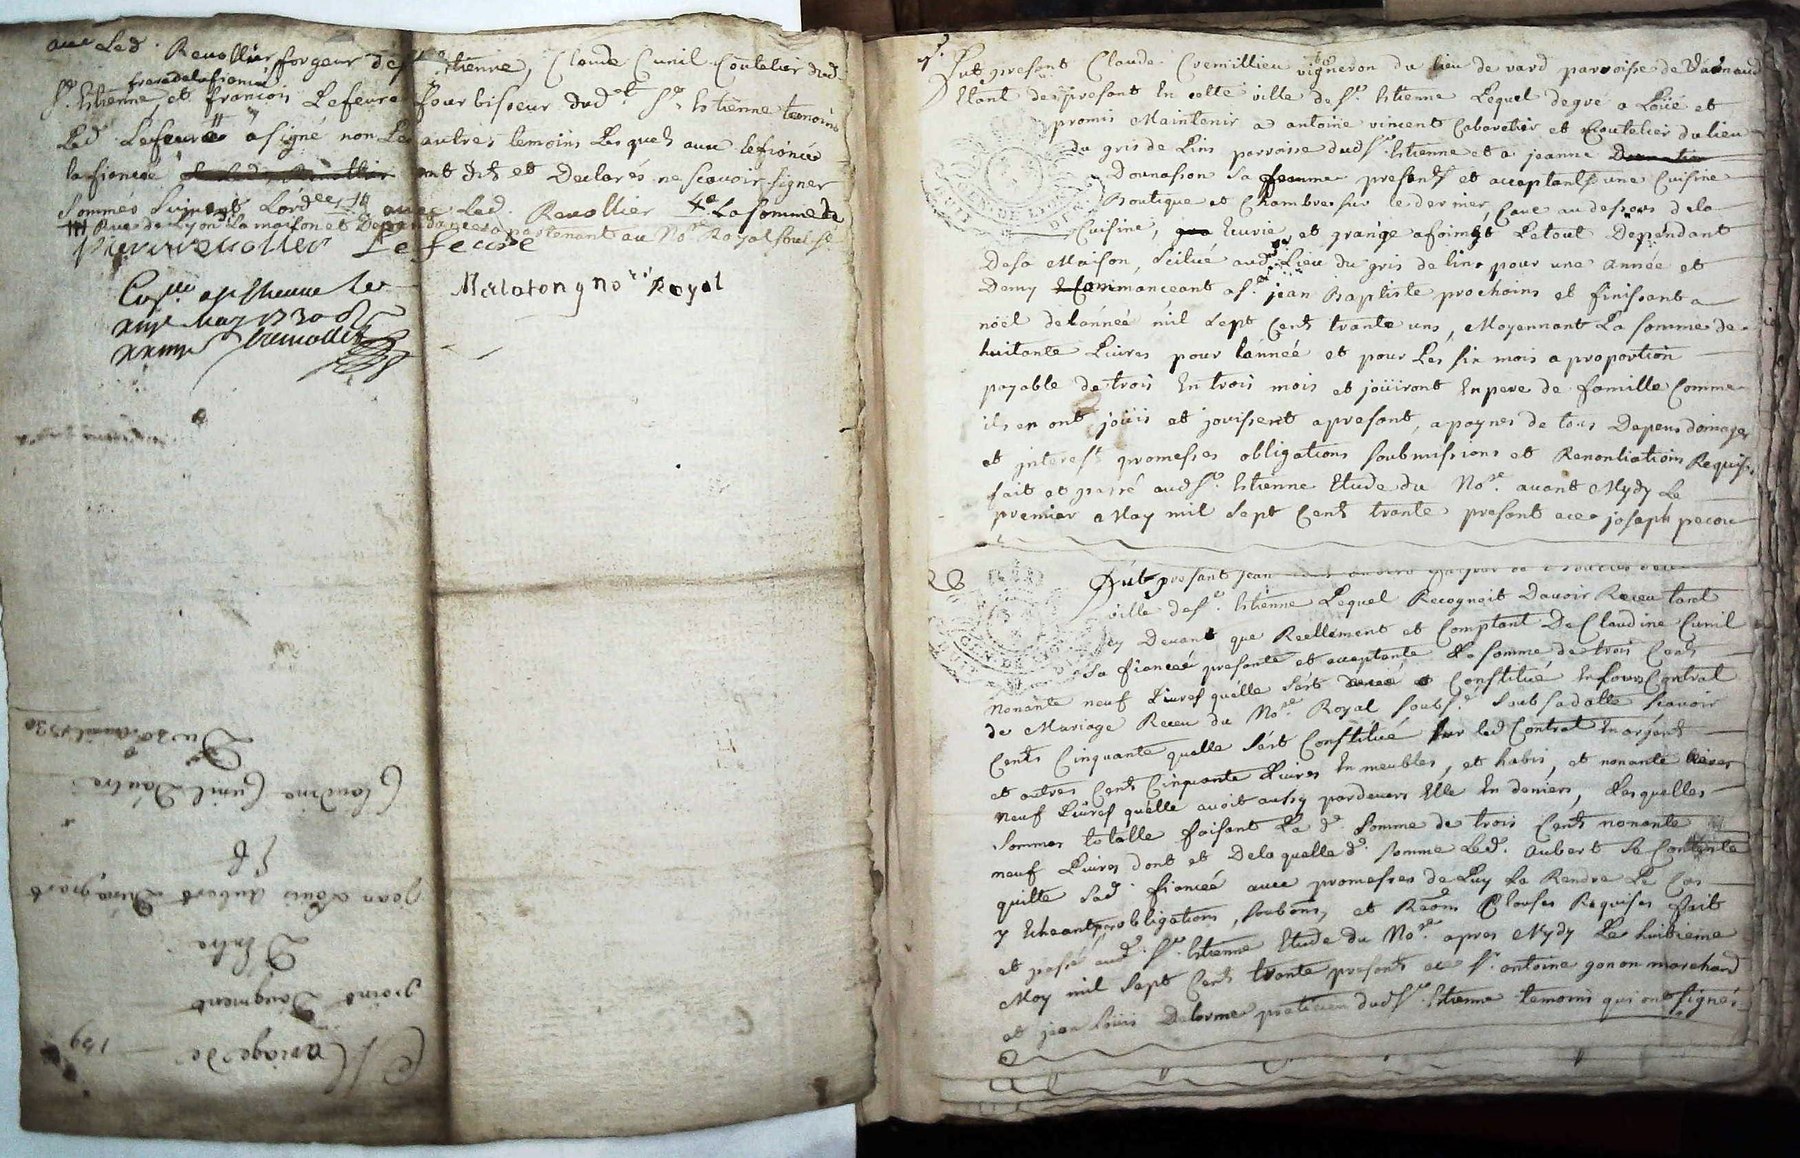 avec Led. Revollier forgeur de St Etienne, Claude Cunil Coutelier dud.
frere de la fiancée
St. Estienne, et francois Lefevre fourbisseur dud.t St. Estienne temoins
Led. Lefevre a signé non Les autres temoins Lesquels avec le fiancé
la fiancée ont dit et Declarés ne scavoir signer
Sommes avec Led. Revollier La somme de
Rue de Lyon La maison et Dependances apartenant au No.re Royal
Pierre revollier Lefevre
a St Etienne le
May 1730
Malaton no.re Royal
Mariage de 159
point daugment
D'Entre
jean Louis Aubert
Et
Claudine Cunil D'autre
Du 30. Avril 1730
Fut present Claude Cremillieu vigneron du lieu de vard parroisse de
Etant de present En cette ville de St. Estienne Lequel de gre a Loüé et
promis Maintenir a antoine vincent Cabaretier et Coutelier du lieu
du gris de Lins parroisse dud. St. Estienne et a jeanne
Dounasion sa femme presents et acceptants une Cuisine
Boutique et Chambre sur le dernier, Cave au dessous de la
Cuisine, Ecurie, et grange a foin Le tout Dependant
de sa Maison, scitué aud. Lieu du gris de lin pour une année et
Demy Commanceant a St. jean Baptiste prochains et finissant a
nöel de lannée mil sept Cents trante uns, Moyennant La somme de
huitante Livres pour lannée et pour Les six mois a proportion
payable de trois En trois mois et joüiront En pere de famille Comme
ils en ont joüis et jouissent a present, a peynes de tous Depens domages
et interest promesses obligations soubmissions et Renontiations Requises
fait et passé aud. St. Estienne Etude du No.re avant Mydy Le
premier May mil sept Cents trante present avec joseph pecou
26
Fut present jean
ville de St. Estienne Lequel Recognoit Davoir Receu tant
cy Devant que Reellement et Comptant De Claudine Cunil
sa fiancée presente et acceptante La somme de trois Cents
nonante neuf Livres quélle s'est Constitué En Leur Contrat
de Mariage Receu du No.re Royal soubs.é soub sa datte scavoir
Cents Cinquante quelle s'est Constitué sur led. Contrat En argent
et autres Cents Cinquante Livres En meubles, et habis, et nonante
neuf Livres quélle avoit aussy pardevers Elle En deniers, Lesquelles
sommes totalle faisant La d. somme de trois Cents nonante
neuf Livres dont et De laquelle d. somme Led. Aubert Se Contente
quitte sad. fiancée avec promesses de Luy La Rendre Le Cas
y Echeant, obligations, soubons, et Renons Clauses Requises fait
et passé aud. St. Estienne Etude du No.re apres Mydy Le huitieme
May mil sept Cents trante presents avec Sr. antoine gonon marchand
et jean Louis Delorme praticien dud. St. Estienne temoins qui ont signés